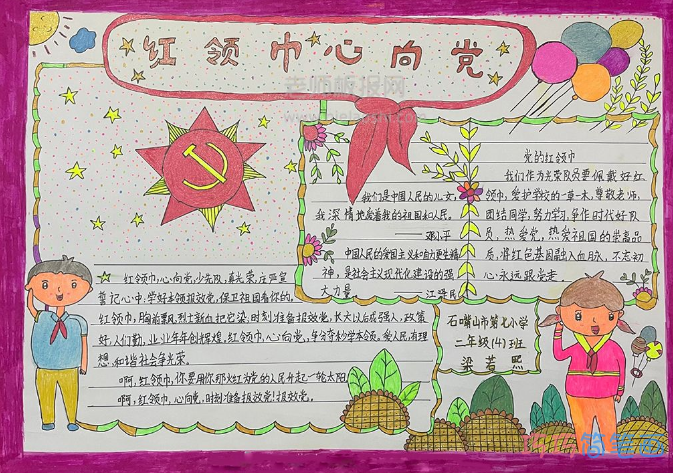 红领巾心向党
老师板报网
党的红领巾
我们作为光荣队员要佩戴好红
领巾,爱护学校的一草一木,尊敬老师,
团结同学,努力学习,争作时代好队
员,热爱党,热爱祖国的崇高品
质,将红色基因融入血脉,不忘初
心,永远跟党走
我们是中国人民的儿女,
我深情地爱着我的祖国和人民。
——邓小平
中国人民的爱国主义和奋力更生精
神,是社会主义现代化建设的强
大力量
江泽民
红领巾,心向党,少先队,真光荣,庄严宣
誓记心中,学好本领报效党,保卫祖国看你的。
红领巾,胸前飘,烈士鲜血把它染,时刻准备报效党,长大以后成强人,政策
好,人们勤,业业年年创辉煌,红领巾,心向党,争分夺秒学本领。爱人民,有理
想,和谐社会争光荣。
啊,红领巾,你要用你那火红为党的人民升起一轮太阳
啊,红领巾,心向党,时刻准备报效党!报效党。
石嘴山市第七小学
二年级(4)班
梁若熙